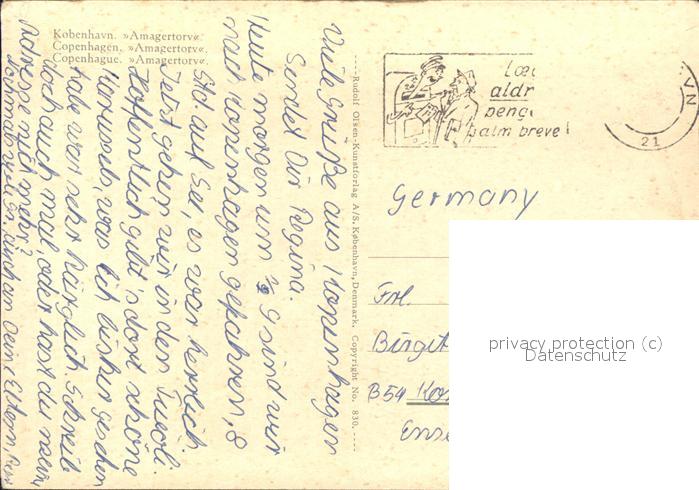 København. »Amagertorv«.
Copenhagen. »Amagertorv«.
Copenhague. »Amagertorv«.
Viele Grüße aus Kopenhagen
Sendet Dir Regina.
Heute morgen um 9 sind wir
nach Kopenhagen gefahren, 8
Std auf See, es war herrlich.
Jetzt gehen wir in den Tivoli.
Hoffentlich gibt's dort schöne
Karussels, was ich bisher gesehen
habe war sehr kärglich. Schreib
doch auch mal, oder hast du meine
Adresse nicht mehr?
Nochmals viele Gr. auch an Deine Eltern,
----Rudolf Olsen-Kunstforlag A/S, København, Denmark. Copyright No. 830.----
aldr
penge
alm breve!
21
Germany
Frl.
Birgit
B54
Ense
privacy protection (c)
Datenschutz